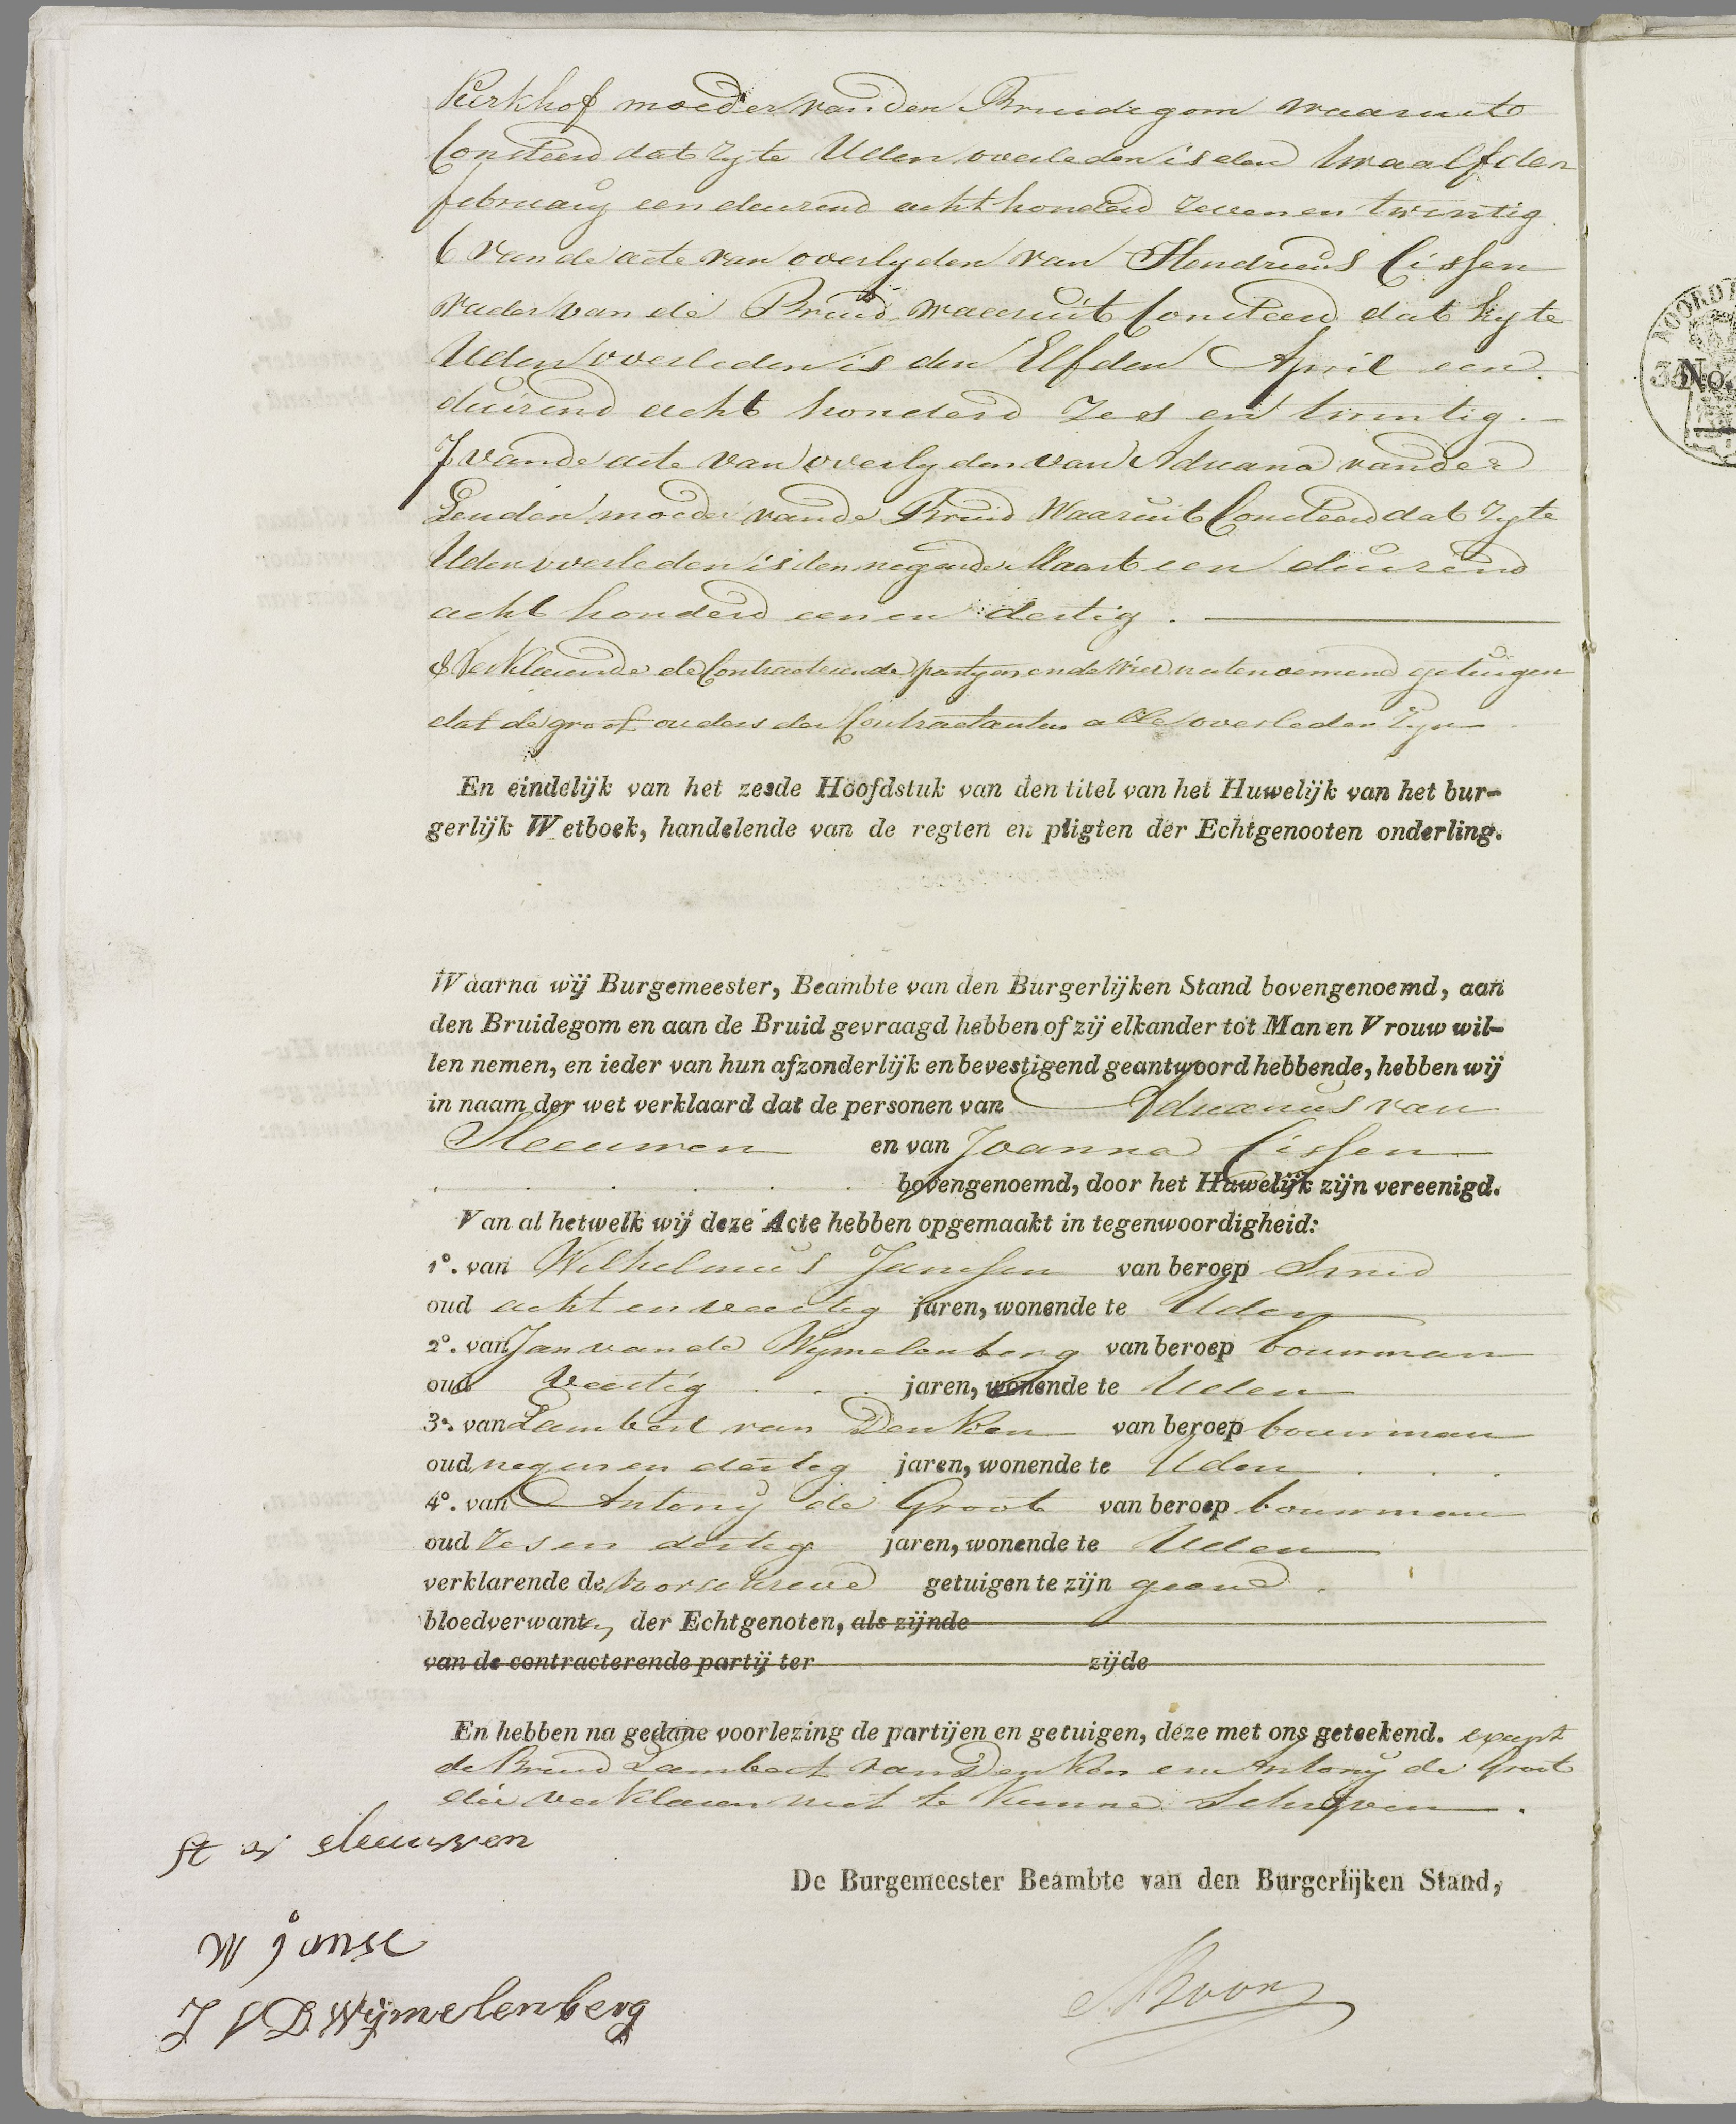 Kerkhof moeder van den Bruidegom waaruit
Consteerd dat zy te Uden overleden is den twaalfden
february een duizend acht honderd zeven en twintig
6 van de acte van overlyden van Hendricus Cissen
vader van de Bruid waaruit Consteerd dat hy te
Uden overleden is den Elfden April een
duizend acht honderd zes en twintig.
7 van de acte van overlyden van Adriana van der
Leuden moeder van de Bruid Waaruit Consteerd dat zy te
Uden overleden is den negende Maart een duizend
acht honderd een en dertig.
& Verklaarende de Contracteerende partyen en de vier natenoemend getuigen
dat de groot ouders der Contractanten alle overleden zyn
En eindelijk van het zesde Hoofdstuk van den titel van het Huwelijk van het bur-
gerlijk Wetboek, handelende van de regten en pligten der Echtgenooten onderling.
Waarna wij Burgemeester, Beambte van den Burgerlijken Stand bovengenoemd, aan
den Bruidegom en aan de Bruid gevraagd hebben of zij elkander tot Man en Vrouw wil-
len nemen, en ieder van hun afzonderlijk en bevestigend geantwoord hebbende, hebben wij
in naam der wet verklaard dat de personen van Adrianus van
Sleeuwen en van Joanna Cissen
bovengenoemd, door het Huwelijk zijn vereenigd.
Van al hetwelk wij deze Acte hebben opgemaakt in tegenwoordigheid:
1°. van Wilhelmus Janssen van beroep Smid
oud acht en veertig jaren, wonende te Uden
2°. van Jan van de Wymelenberg van beroep bouwman
oud Veertig jaren, wonende te Uden
3°. van Lambert van Denken van beroep bouwman
oud negen en dertig jaren, wonende te Uden
4°. van Antony de Groot van beroep bouwman
oud zes en dertig jaren, wonende te Uden
verklarende de voorschreve getuigen te zijn geene
bloedverwanten der Echtgenoten, als zijnde
van de contracterende partij ter zijde
En hebben na gedane voorlezing de partijen en getuigen, deze met ons geteekend. exept
de Bruid Lambert van Denken en Antony de Groot
die verklaren niet te kunne Schryven.
A v sleeuwen
De Burgemeester Beambte van den Burgerlijken Stand,
W janse
J V D Wijmelenberg
NOORD
No.